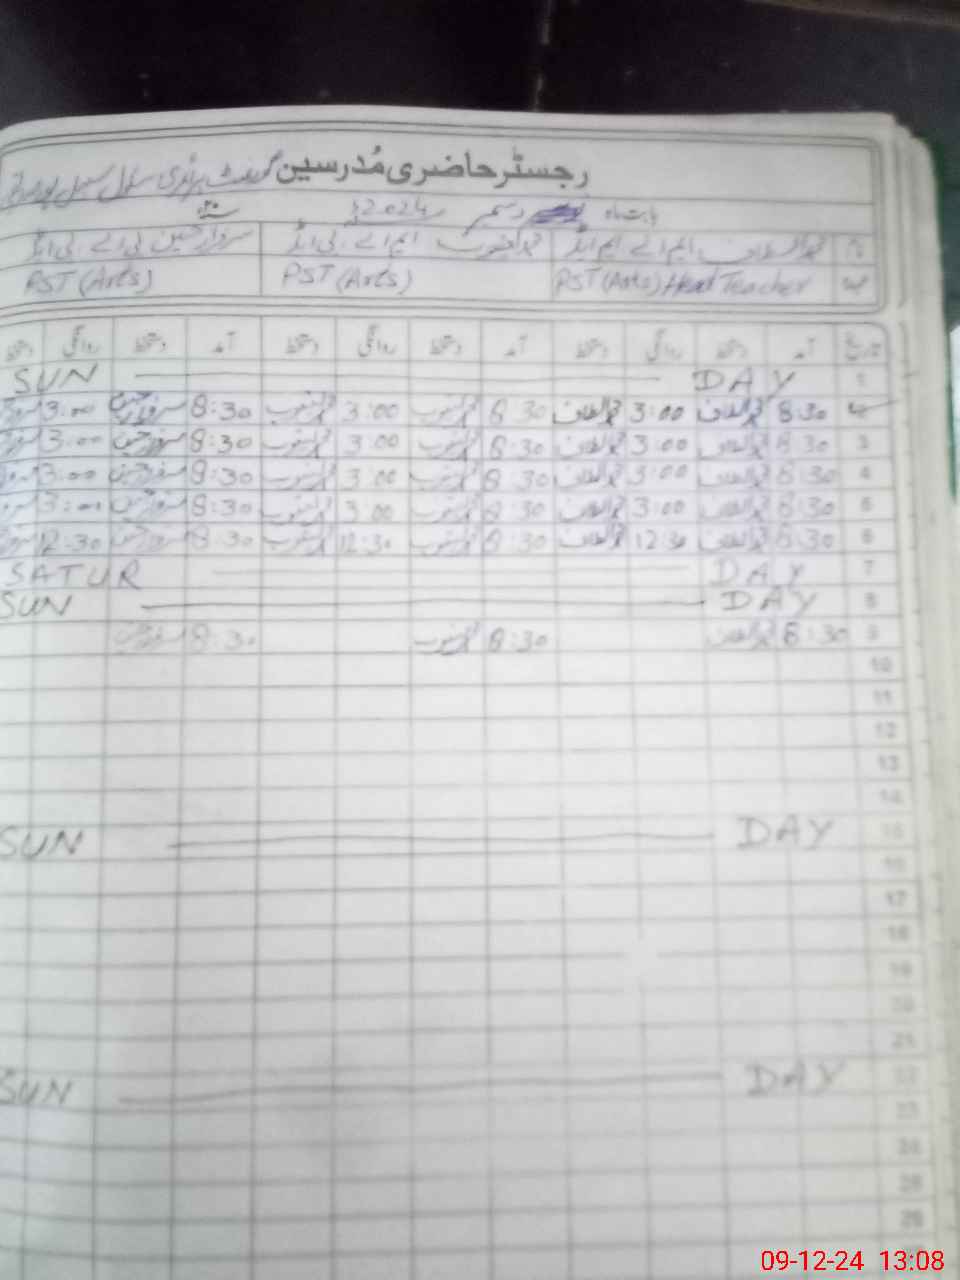 رجسٹر حاضری مُدرسین گورنمنٹ پرائمری سکول
بابت ماہ دسمبر 12.024
محمد الطاف ایم اے ایم ایڈ محمد ایوب ایم اے بی ایڈ سردار حسین بی اے بی ایڈ
PST (Arts) Head Teacher PST (Arts) PST (Arts)
تاریخ آمد دستخط روانگی دستخط آمد دستخط روانگی دستخط آمد دستخط روانگی دستخط
1 SUN DAY
8:30 محمد الطاف 3:00 محمد الطاف 8:30 محمد ایوب 3:00 محمد ایوب 8:30 سردار حسین 3:00
3 8:30 محمد الطاف 3:00 محمد الطاف 8:30 محمد ایوب 3:00 محمد ایوب 8:30 سردار حسین 3:00
4 8:30 محمد الطاف 3:00 محمد الطاف 8:30 محمد ایوب 3:00 محمد ایوب 8:30 سردار حسین 3:00
5 8:30 محمد الطاف 3:00 محمد الطاف 8:30 محمد ایوب 3:00 محمد ایوب 8:30 سردار حسین 3:00
6 8:30 محمد الطاف 12:30 محمد الطاف 8:30 محمد ایوب 12:30 محمد ایوب 8:30 سردار حسین 12:30
7 SATUR DAY
8 SUN DAY
9 8:30 محمد الطاف 8:30 محمد ایوب 8:30 سردار حسین
10
11
12
13
14
15 SUN DAY
16
17
18
19
20
21
22 SUN DAY
23
24
25
26
09-12-24 13:08